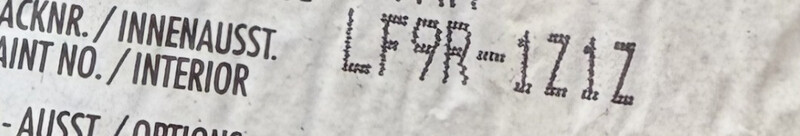 ACKNR. / INNENAUSST. LF9R-1Z1Z
AINT NO. / INTERIOR
- AUSST. / OPTIONS